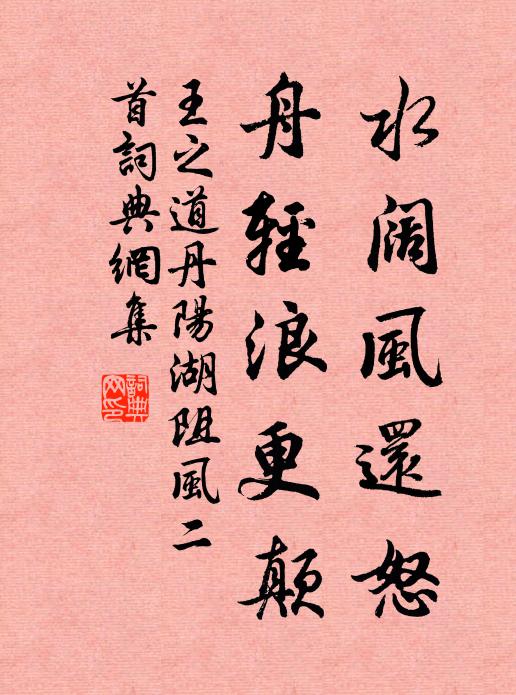 水阔風還怒
舟輕浪更顛
王之道丹陽湖阻風二
首詞典網集
詞典
网印